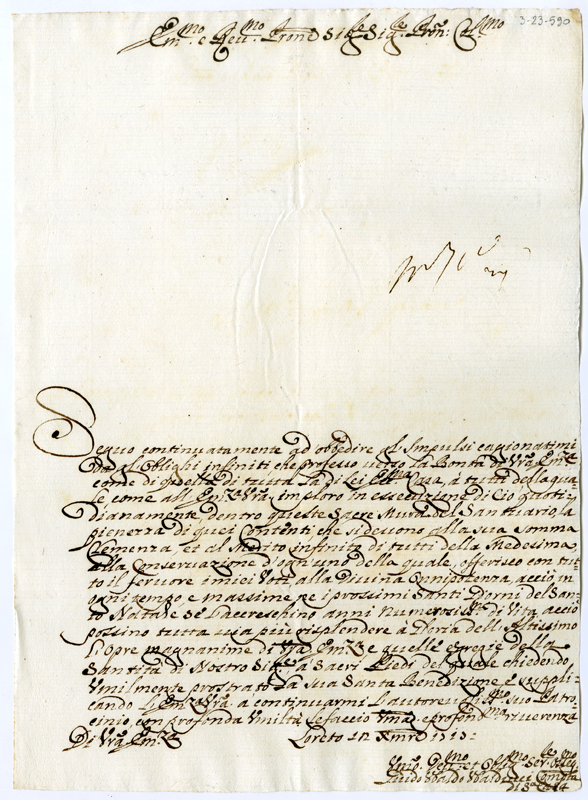 3-23-590
Em.mo e Rev.mo Prone Sig.re Sig.re Pron: Col.mo
Seguo continuatamente ad obbedire al Impulsi cagionatimi
da gl'Oblighi infiniti che professo verso la Bontà di Vra Em.za
come di quella di tutta la di Lei Ecc.ma Casa, à tutti della qua
le come all' Em.za Vra imploro in essecuzione di Cio quoti-
dianamente, dentro queste Sacre Mura del Santuario, la
pienezza di quei Contenti che si devono alla sua somma
Clemenza, et al Merito infinito di tutti della Medesima,
alla Conservazione d'ogn'uno della quale, offerisco con tut-
to il fervore indici Voti alla Divina Onnipotenza, acciò in
ogni tempo e massime ne i prossimi Santi Giorni del San-
to Natale se l'accreschino anni numerosi di Vita, acciò
possino tutta via più risplendere à Gloria dell'Altissimo
l'Opre magnanime di Vra Em.za e quelle egregie della
Santità di Nostro Sig.re à Sacri Piedi del quale chiedendo,
Umilmente prostrato la Sua Santa Benedizione e suppli-
cando l'Em.za Vra a continuarmi l'autorevol.mo suo Patro-
cinio con profonda umiltà le faccio Um.ma e profond.ma riverenza
Di Vra Em.za Loreto